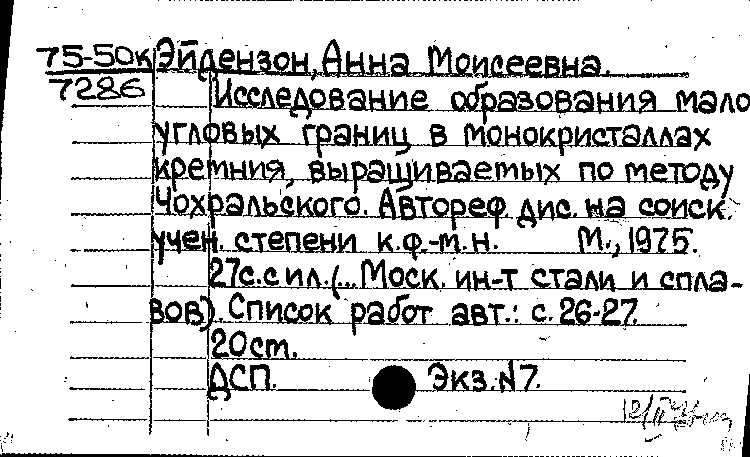 75-50к Эйдензон, Анна Моисеевна.
7286 Исследование образования мало
угловых границ в монокристаллах
кремния, выращиваемых по методу
Чохральского. Автореф дис. на соиск.
учен. степени к.ф.-м.н. М., 1975.
27с. с ил. (... Моск. ин-т стали и спла-
вов). Список работ авт.: с. 26-27.
20 см.
ДСП. Экз. №7.